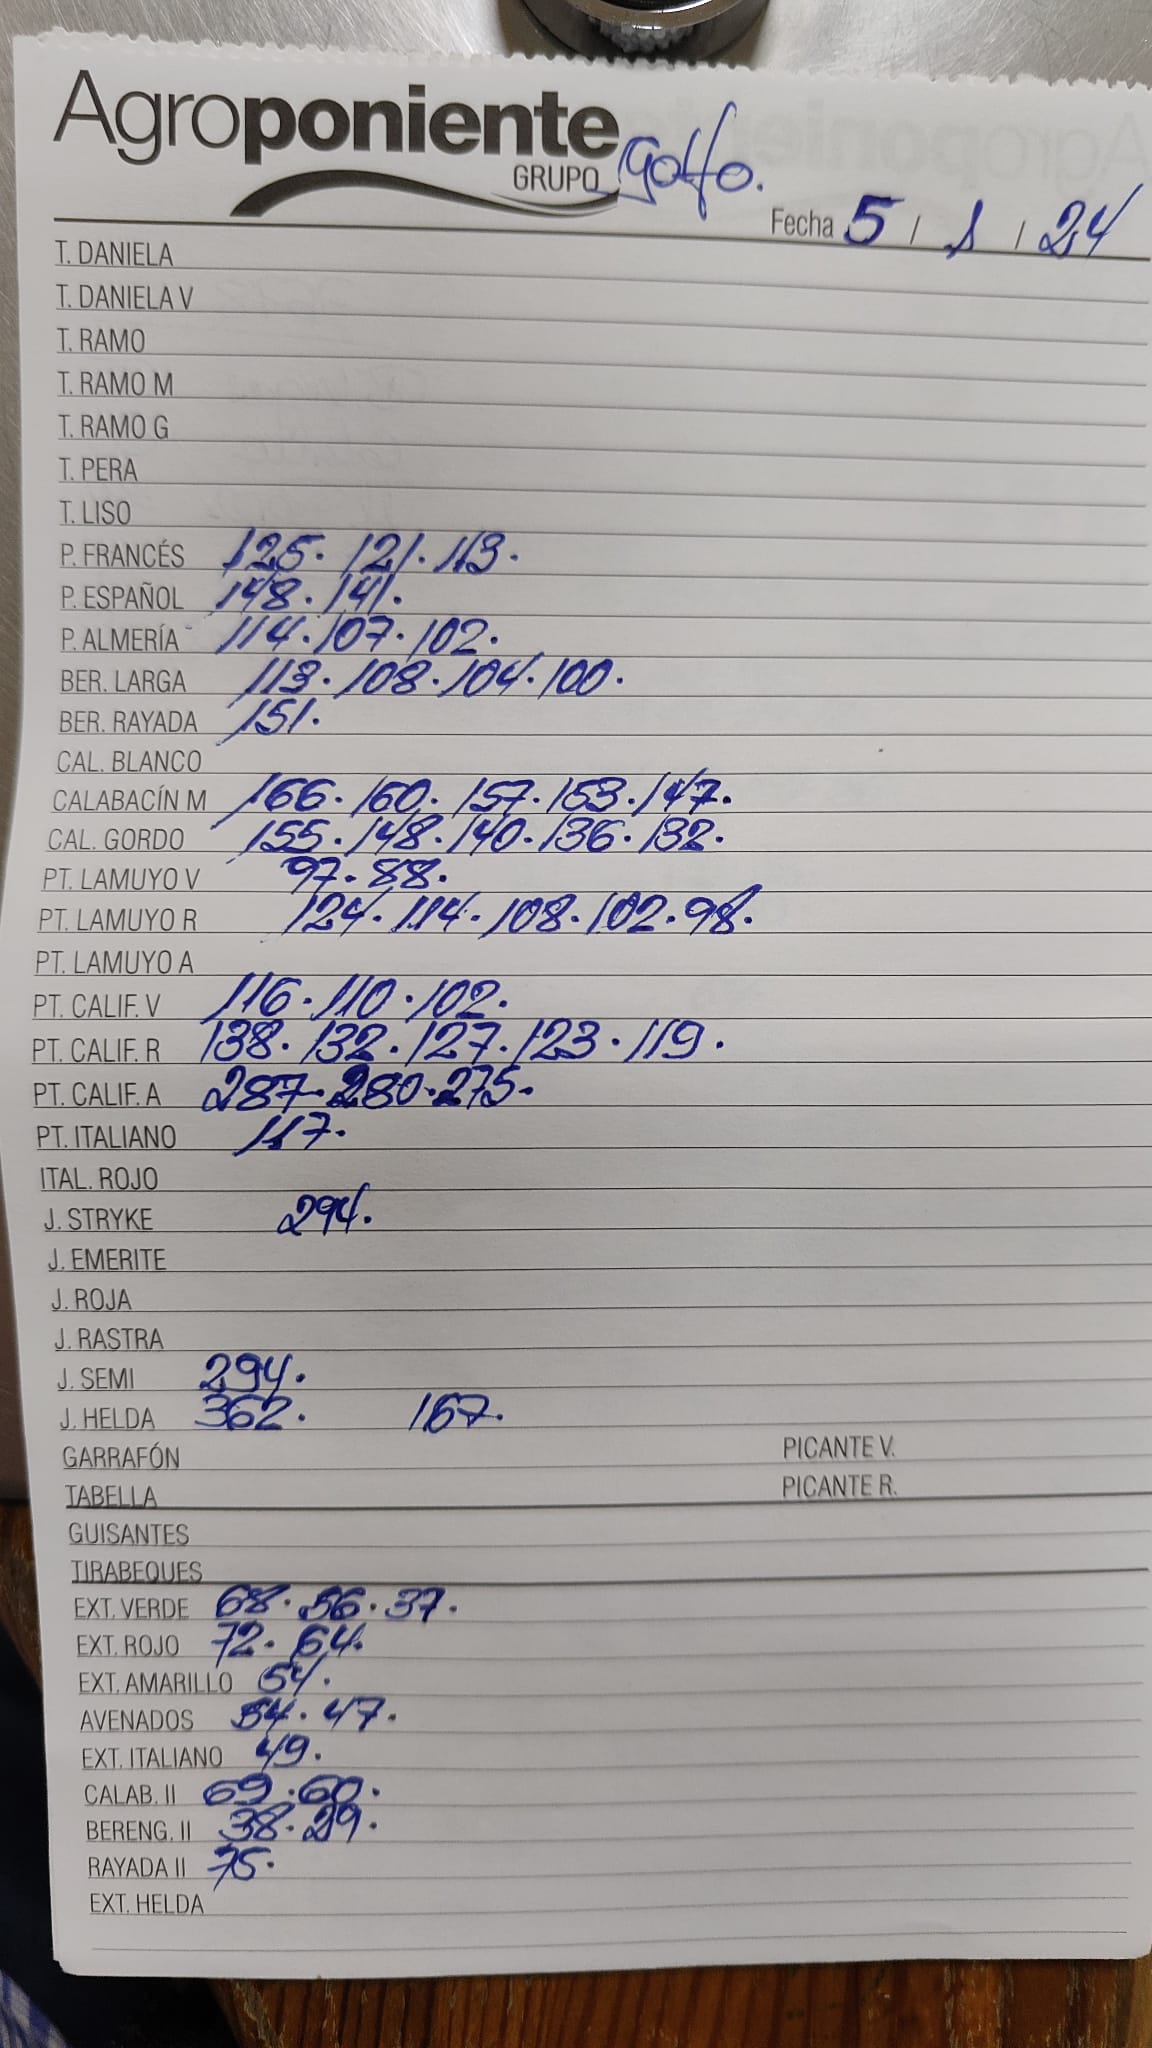 Agroponiente
GRUPO golfo.
Fecha 5 / 1 / 24
T. DANIELA
T. DANIELA V
T. RAMO
T. RAMO M
T. RAMO G
T. PERA
T. LISO
P. FRANCÉS 125. 121. 113.
P. ESPAÑOL 148. 141.
P. ALMERÍA 114. 107. 102.
BER. LARGA 113. 108. 104. 100.
BER. RAYADA 151.
CAL. BLANCO
CALABACÍN M 166. 160. 157. 153. 147.
CAL. GORDO 155. 148. 140. 136. 132.
PT. LAMUYO V 97. 88.
PT. LAMUYO R 124. 114. 108. 102. 98.
PT. LAMUYO A
PT. CALIF. V 116. 110. 102.
PT. CALIF. R 138. 132. 127. 123. 119.
PT. CALIF. A 287. 280. 275.
PT. ITALIANO 117.
ITAL. ROJO
J. STRYKE 294.
J. EMERITE
J. ROJA
J. RASTRA
J. SEMI 294.
J. HELDA 362. 167.
GARRAFÓN PICANTE V.
TABELLA PICANTE R.
GUISANTES
TIRABEQUES
EXT. VERDE 68. 56. 37.
EXT. ROJO 72. 64.
EXT. AMARILLO 54.
AVENADOS 54. 47.
EXT. ITALIANO 49.
CALAB. II 69. 60.
BERENG. II 38. 29.
RAYADA II 75.
EXT. HELDA